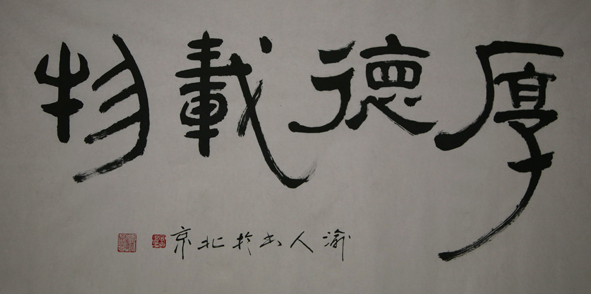 厚德載物
渝人书於北京